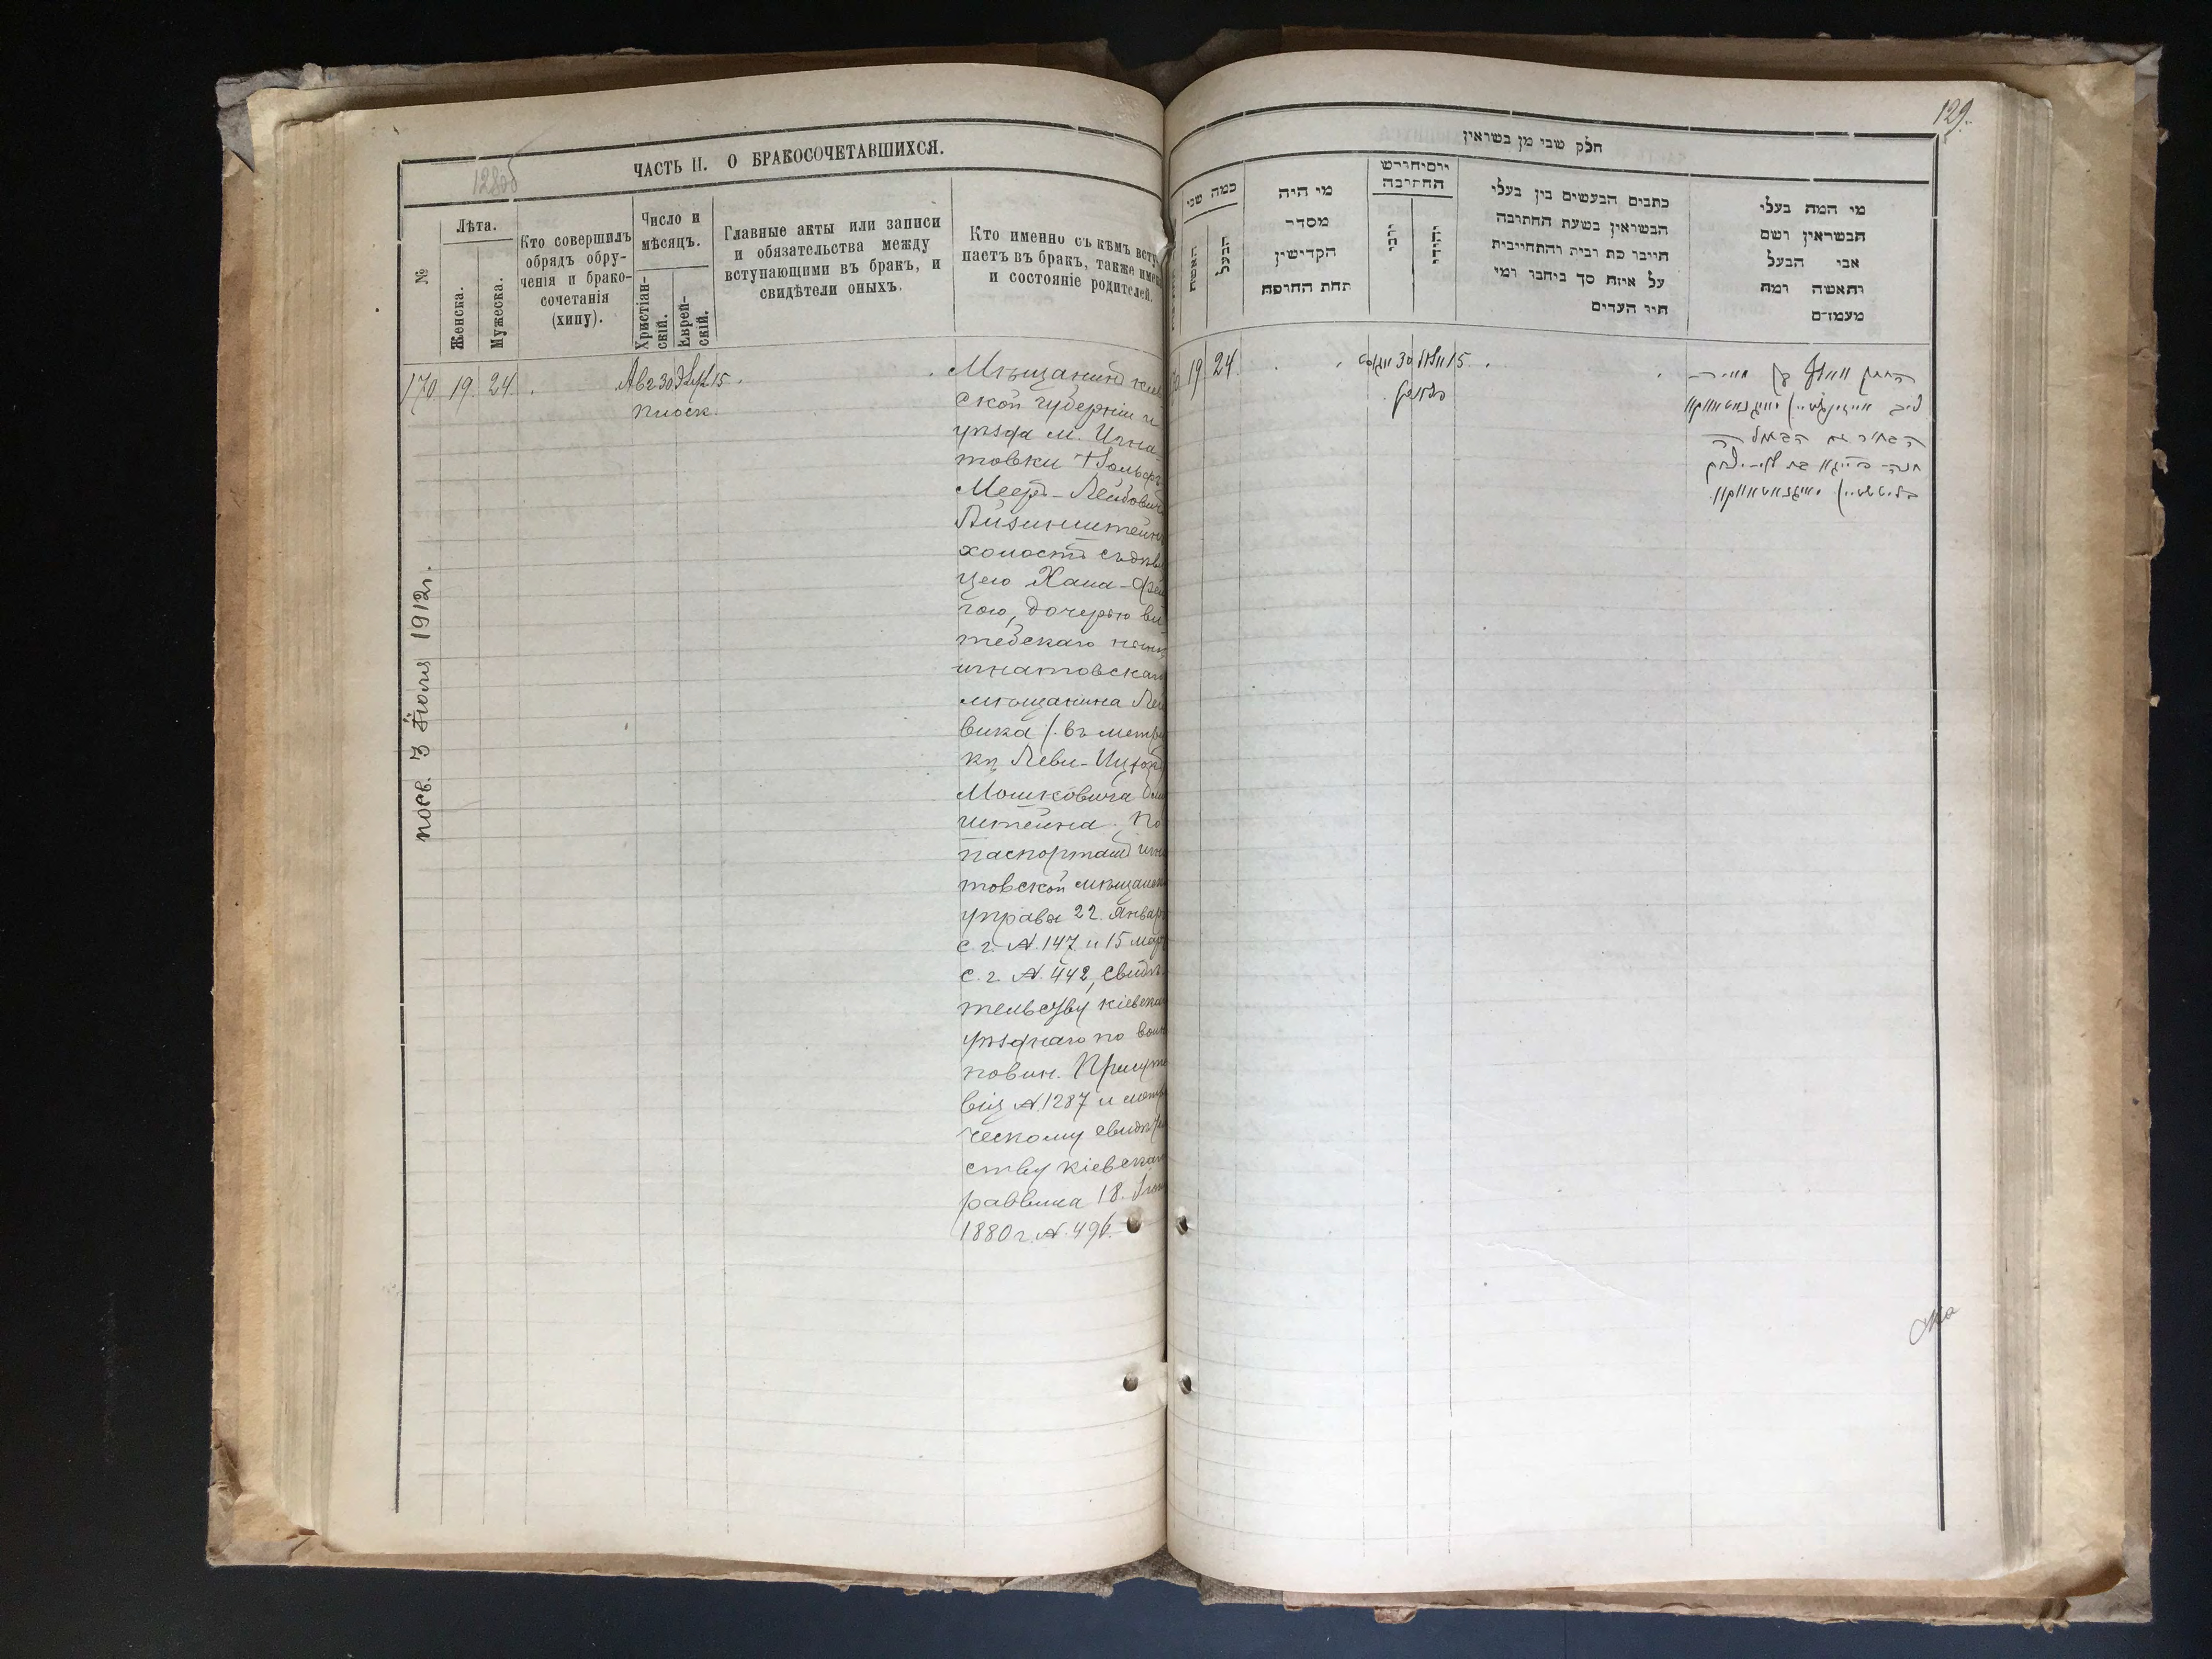 128об
ЧАСТЬ II. О БРАКОСОЧЕТАВШИХСЯ.
№
Лѣта.
Женска.
Мужеска.
Кто совершилъ
обрядъ обру-
ченія и брако-
сочетанія
(хипу).
Число и
мѣсяцъ.
Христіан-
скій.
Еврей-
скій.
Главные акты или записи
и обязательства между
вступающими въ бракъ, и
свидѣтели оныхъ.
Кто именно съ кѣмъ всту
паетъ въ бракъ, также имен
и состояніе родителей.
170. 19. 24. Авг 30 15
Мѣщанинъ кіев
ской губерніи и
уѣзда м. Игна-
товки
Мееръ-Лейбовичъ
Айзинштейнъ
холостъ съ дѣви
цею Хана-Фей
гою, дочерью ви
тебскаго нынѣ
игнатовскаго
мѣщанина Лей
вика (въ метри
кѣ Леви-Ицхокъ
Мошковича
штейна. По
паспортамъ игна
товской мѣщанск
управы 22. Январ
с. г. №. 147 и 15 мар
с. г. №. 442, свидѣ
тельству кіевска
уѣзднаго по воин
повин. Присутс
вія №. 1287 и метри
ческому свидѣтел
ству кіевскаго
раввина 18.
1880 г. №. 496.
посв. 3 Іюля 1912 г.
129.
חלק שני מן נשואין
כמה שני
האשה
הבעל
מי היה
מסדר
הקדישין
תחת החופה
יום וחודש
החתונה
נוצרי
יהודי
כתבים הנעשים בין בעלי
הנשואין בשעת החתונה
חייבו כת רבית והתחייבית
על איזה סך ביחבו ומי
היו העדים
מי המה בעלי
הנשואין ושם
אבי הבעל
והאשה ומה
מעמדם
19 24. 30 אוגוסט 15 אלול
החתן
הבחור עם הבתולה
חנה-פייגא בת לוי-יצחק